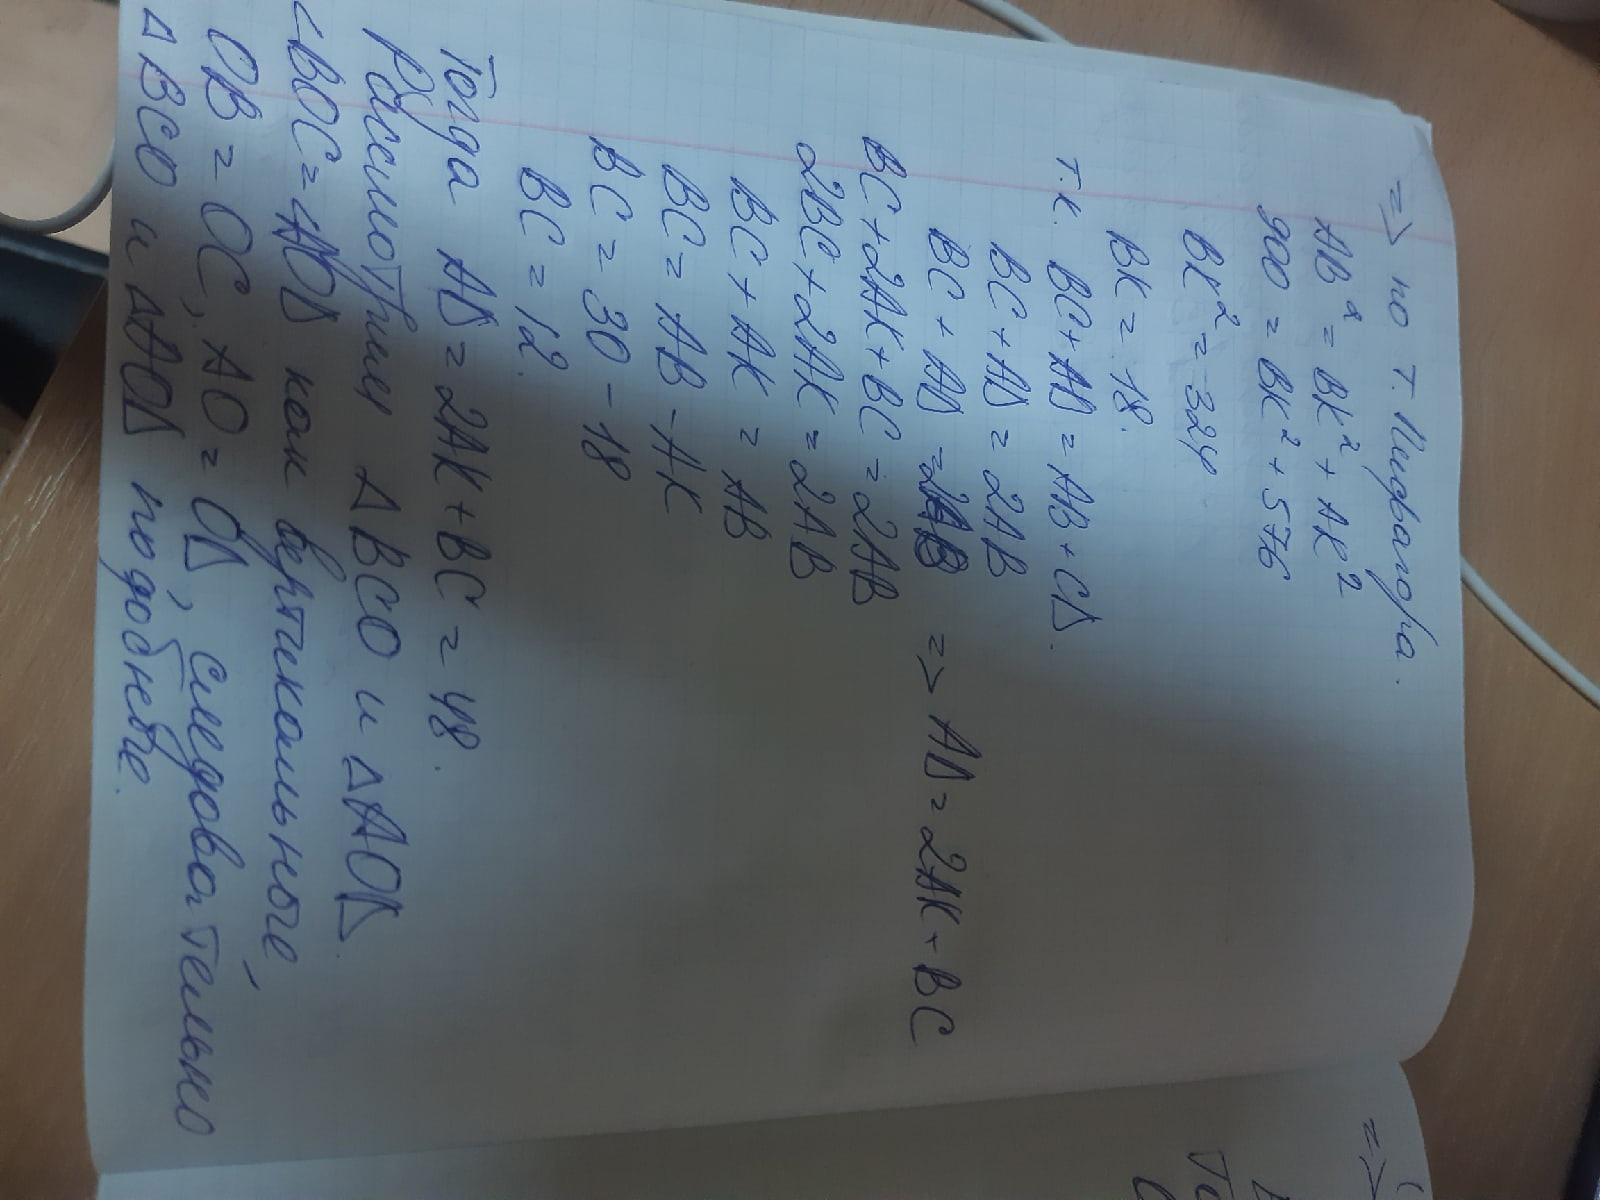 => по т. Пифагора.
AB² = BK² + AK²
900 = BK² + 576
BK² = 324
BK = 18.
т.к. BC + AD = AB + CD.
BC + AD = 2AB
BC + AD = 2AB => AD = 2AK + BC
BC + 2AK + BC = 2AB
2BC + 2AK = 2AB
BC + AK = AB
BC = AB - AK
BC = 30 - 18
BC = 12.
Тогда AD = 2AK + BC = 48.
Рассмотрим Δ BCO и Δ AOD.
∠BOC = ∠AOD как вертикальные,
OB = OC, AO = OD, следовательно
Δ BCO и Δ AOD подобные.
=>